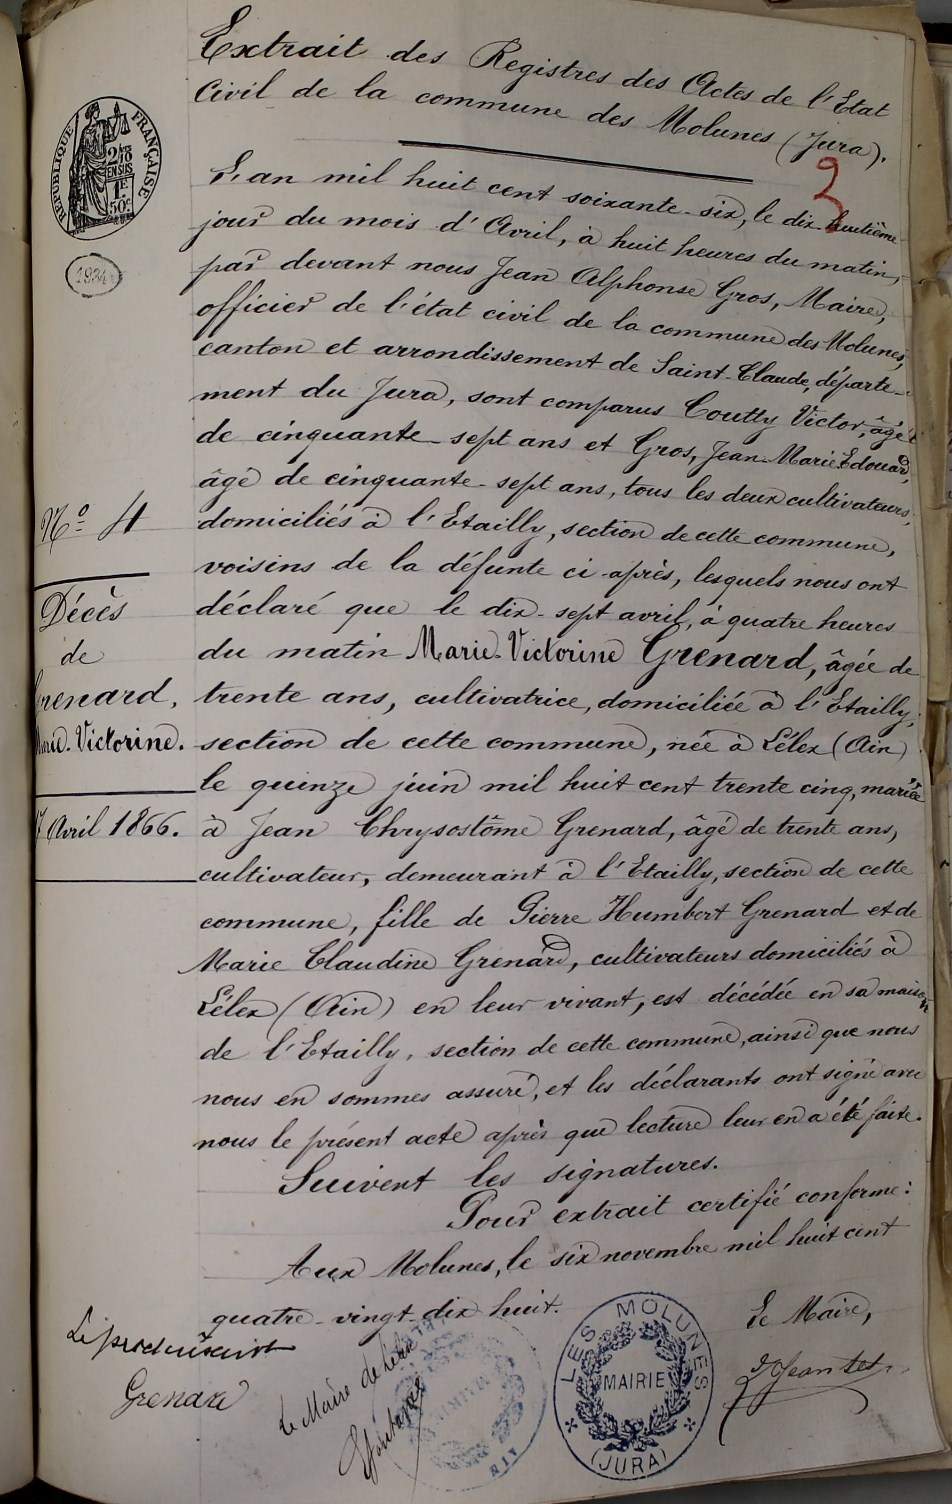 Extrait des Registres des Actes de l'Etat
Civil de la commune des Molunes (Jura).
RÉPUBLIQUE FRANÇAISE
2/10
EN SUS
1F
50c
L'an mil huit cent soixante-six, le dix-huitième
jour du mois d'Avril, à huit heures du matin,
par devant nous Jean Alphonse Gros, Maire,
officier de l'état civil de la commune des Molunes,
canton et arrondissement de Saint-Claude, départe-
ment du Jura, sont comparus Coutty Victor, âgé
de cinquante-sept ans et Gros, Jean-Marie Edouard,
âgé de cinquante-sept ans, tous les deux cultivateurs,
domiciliés à l'Etailly, section de cette commune,
voisins de la défunte ci-après, lesquels nous ont
déclaré que le dix-sept avril, à quatre heures
du matin Marie-Victorine Grenard, âgée de
trente ans, cultivatrice, domiciliée à l'Etailly,
section de cette commune, née à Lélex (Ain)
le quinze juin mil huit cent trente cinq, mariée
à Jean Chrysostôme Grenard, âgé de trente ans,
cultivateur, demeurant à l'Etailly, section de cette
commune, fille de Pierre Humbert Grenard et de
Marie Claudine Grenard, cultivateurs domiciliés à
Lélex (Ain) en leur vivant, est décédée en sa maison
de l'Etailly, section de cette commune, ainsi que nous
nous en sommes assuré, et les déclarants ont signé avec
nous le présent acte après que lecture leur en a été faite.
Suivent les signatures.
Pour extrait certifié conforme:
Aux Molunes, le six novembre mil huit cent
quatre-vingt-dix huit.
Le Maire,
No 4
Décès
de
Grenard,
Marie-Victorine.
17 Avril 1866.
Grenard
Le Maire de Lélex
LES MOLUNES
MAIRIE
(JURA)
MAIRIE
AIN